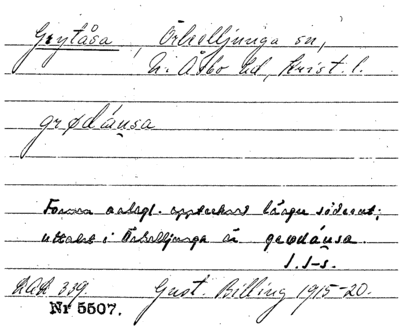 Grytåsa, Örkelljunga sn,
N. Åsbo hd, Krist. l.
grødáṇsa
Formen antagl. upptecknad längre söderut;
uttalet i Örkelljunga är grødáṇsa.
I. I-s.
LAL 339. Gust. Billing 1915-20.
Nr 5507.